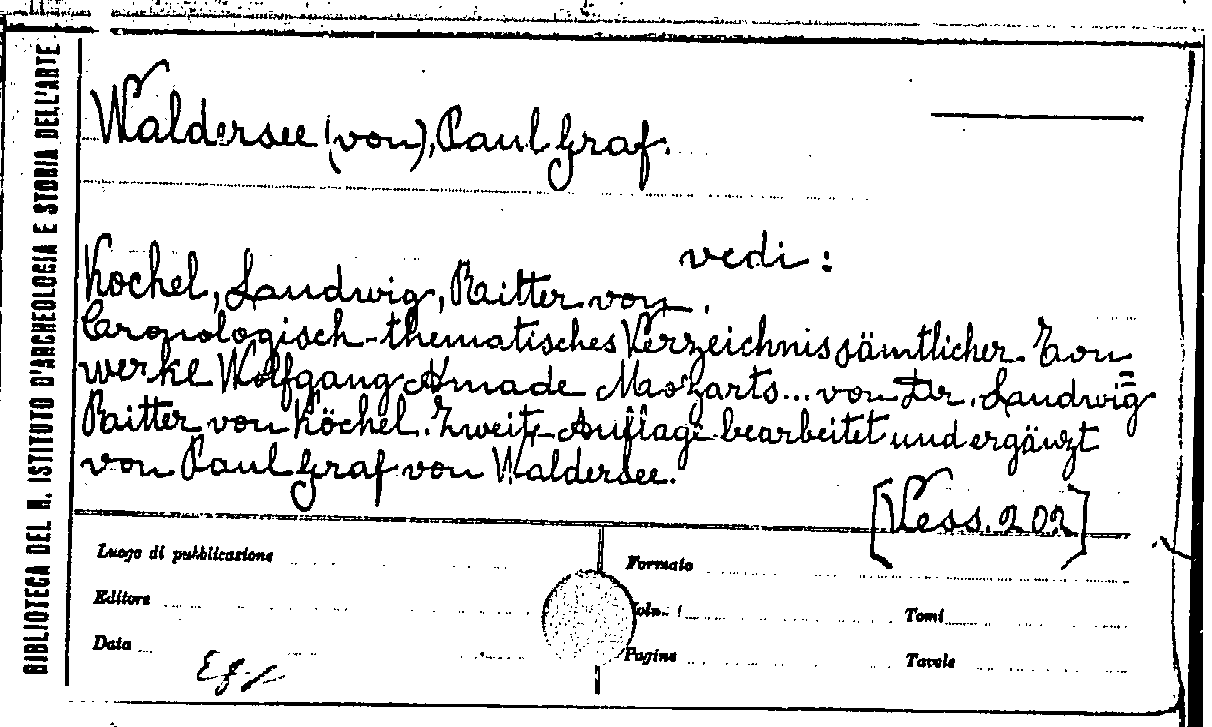 BIBLIOTECA DEL R. ISTITUTO D'ARCHEOLOGIA E STORIA DELL'ARTE
Waldersee (von), Paul Graf.
vedi :
Köchel, Ludwig, Ritter von.
Cronologisch-thematisches Verzeichnis sämtlicher Ton=
werke Wolfgang Amade Mozarts... von Dr. Ludwig
Ritter von Köchel. Zweite Auflage bearbeitet und ergänzt
von Paul Graf von Waldersee.
[Vess. 202]
Luogo di pubblicazione
Formato
Editore
Tomi
Data
Pagine
Tavole